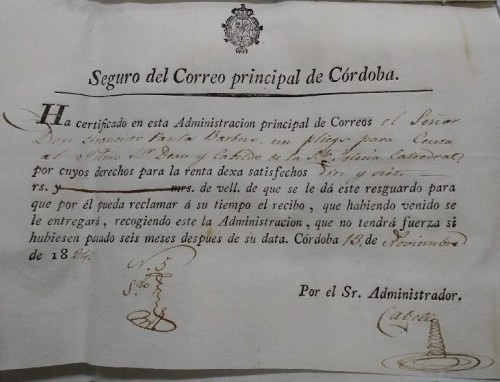 Seguro del Correo principal de Córdoba.
Ha certificado en esta Administracion principal de Correos el Señor
Don Francisco Paula Barbero, un pliego para Ceuta
al Yltmo Sr. Dean y Cabildo de la Sta. Yglesia Catedral
por cuyos derechos para la renta dexa satisfechos Diez y siete
rs. y mrs. de vell. de que se le dá este resguardo para
que por él pueda reclamar á su tiempo el recibo, que habiendo venido se
le entregará, recogiendo este la Administracion, que no tendrá fuerza si
hubiesen pasado seis meses despues de su data. Córdoba 13. de Noviembre
de 18
N. 5
Por el Sr. Administrador.
Cabello